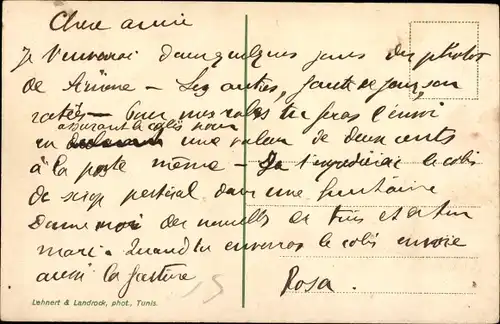 Chere amie
Je t'enverrai dans quelques jours des photos
de Simone - Les autres, faute de jour, son
ratées - Pour mes robes tu feras l'envoi
en assurant le colis pour une valeur de deux cents
à la poste même - Je t'expedierai le colis
de dans une
Donne moi des nouvelles de toi et de ton
mari. Quand tu enverras le colis envoie
aussi la facture
Rosa.
Lehnert & Landrock, phot., Tunis.